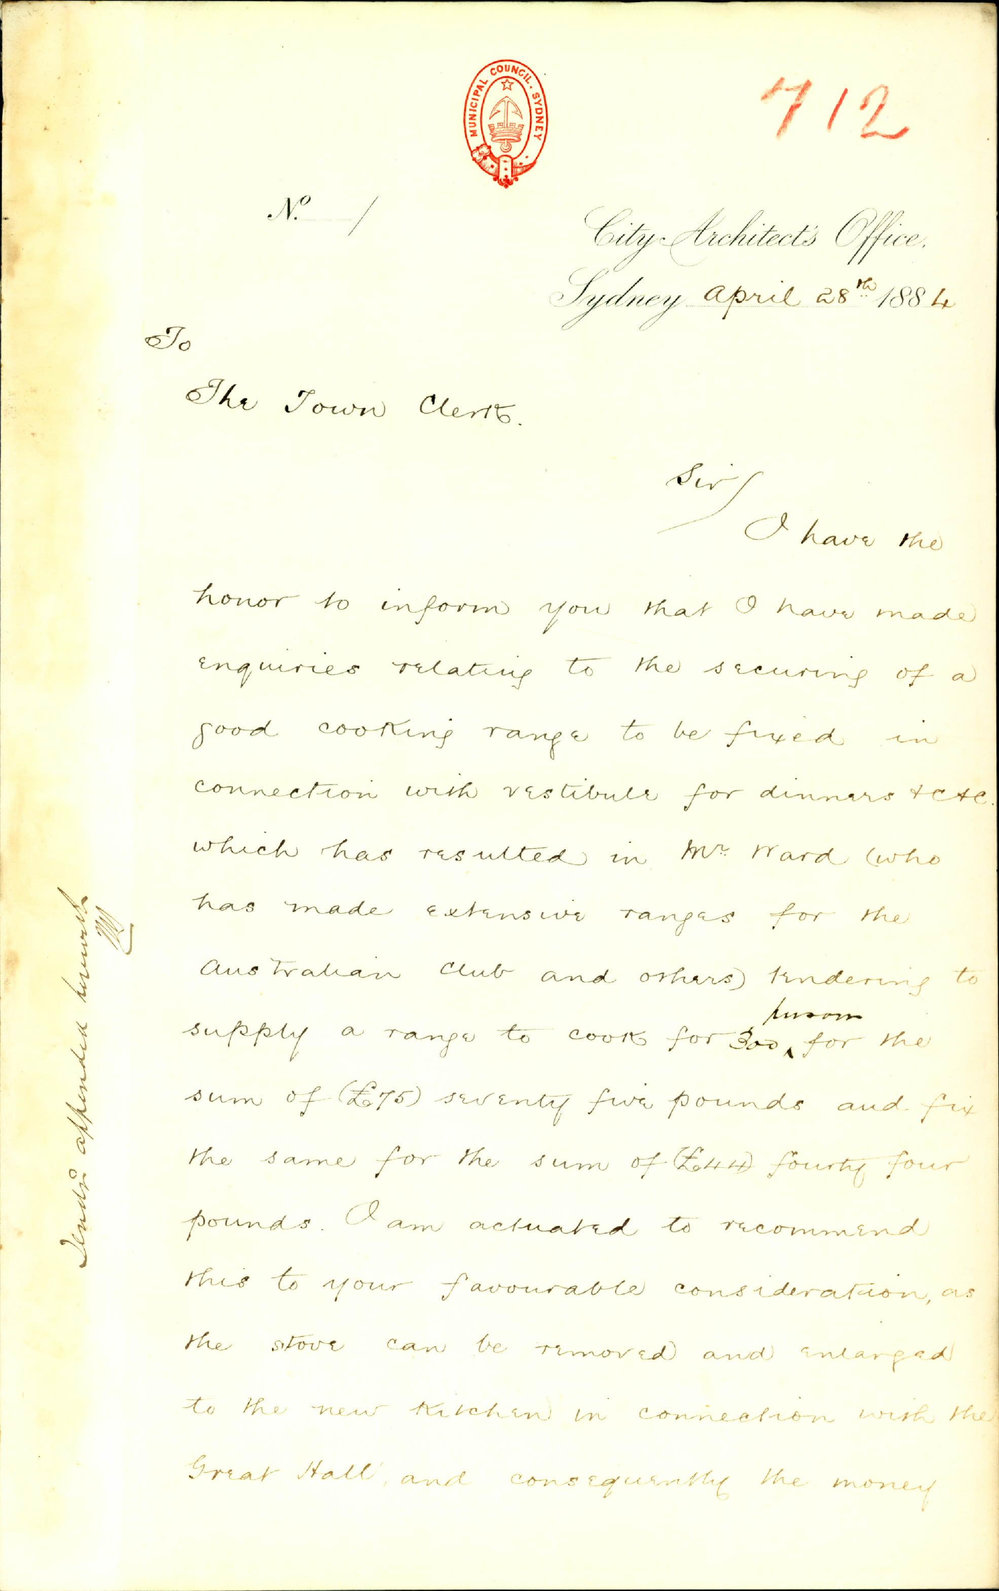 MUNICIPAL COUNCIL. SYDNEY
712
No. /
City Architect's Office.
Sydney April 28th 1884
To
The Town Clerk.
Sir/
I have the
honor to inform you that I have made
enquiries relating to the securing of a
good cooking range to be fixed in
connection with vestibule for dinners &c &c.
which has resulted in Mr. Ward (who
has made extensive ranges for the
Australian Club and others) tendering to
supply a range to cook for 300 ^ persons for the
sum of (£75) seventy five pounds and fix
the same for the sum of (£44) fourty four
pounds. I am actuated to recommend
this to your favourable consideration, as
the stove can be removed and enlarged
to the new kitchen in connection with the
Great Hall, and consequently the money
appended herewith